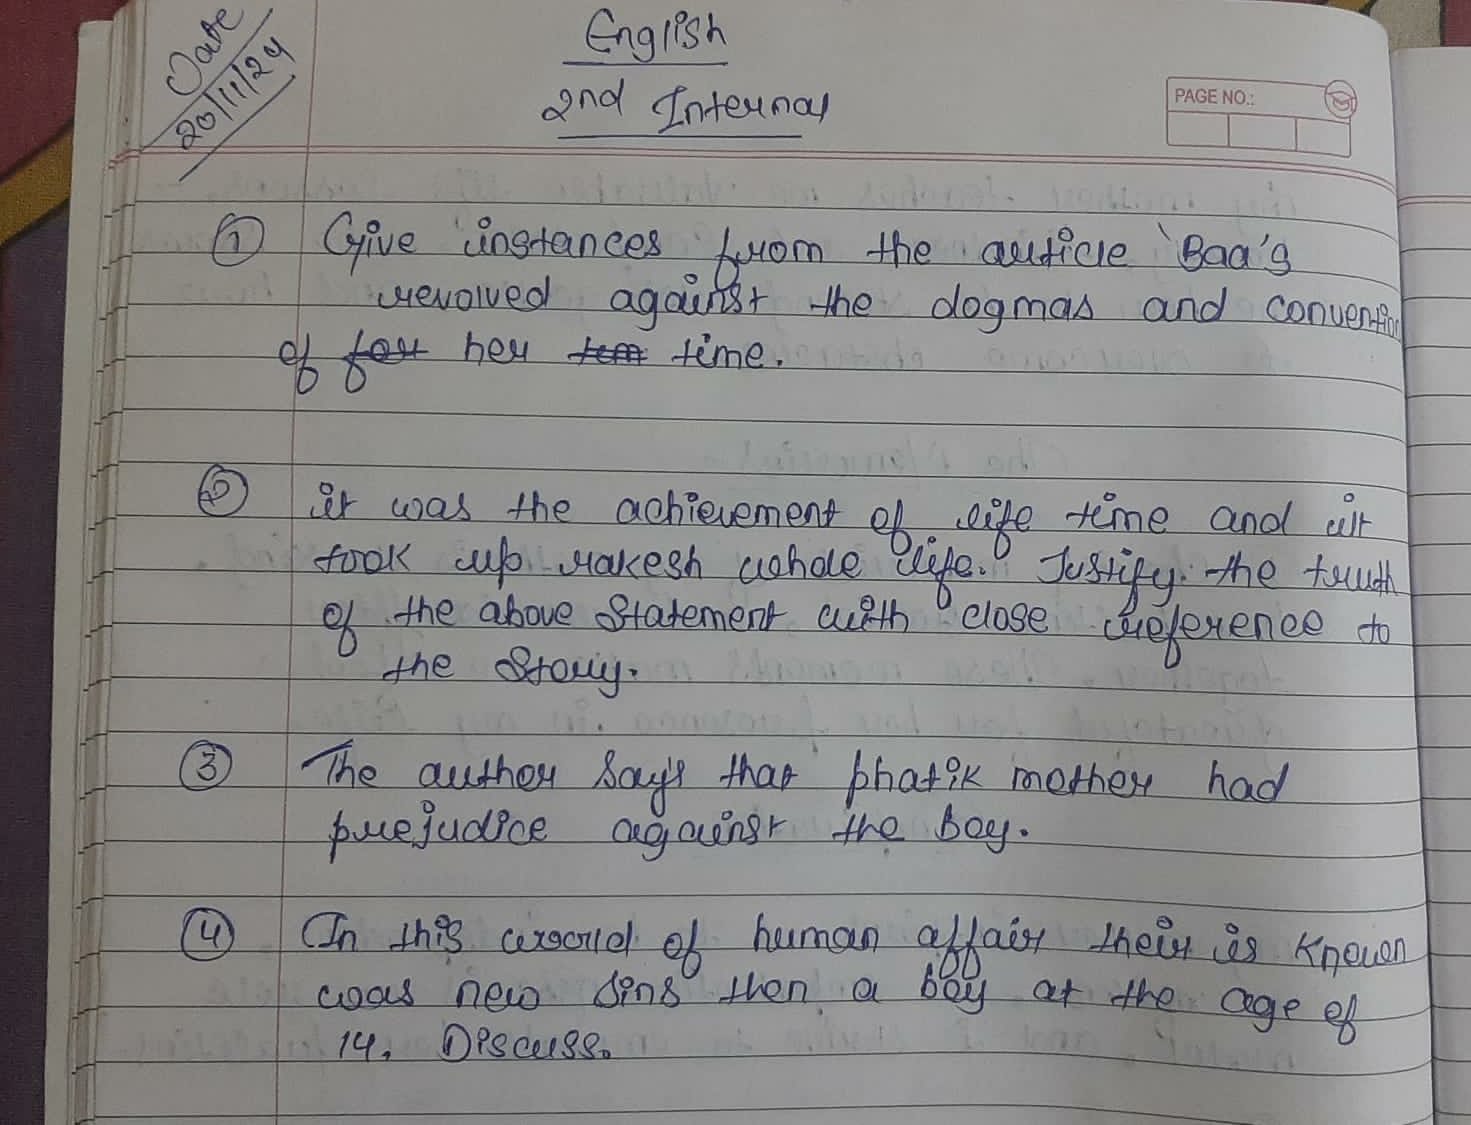 Date
20/11/24
English
2nd Internal
PAGE NO.:
① Give instances from the article 'Baa's
revolved against the dogmas and convention
of for her tem time.
② it was the achievement of life time and it
took up rakesh whole life. Justify the truth
of the above Statement with close reference to
the Story.
③ The author say's that phatik mother had
prejudice against the boy.
④ In this world of human affair their is known
was new sins then a boy at the age of
14. Discuss.